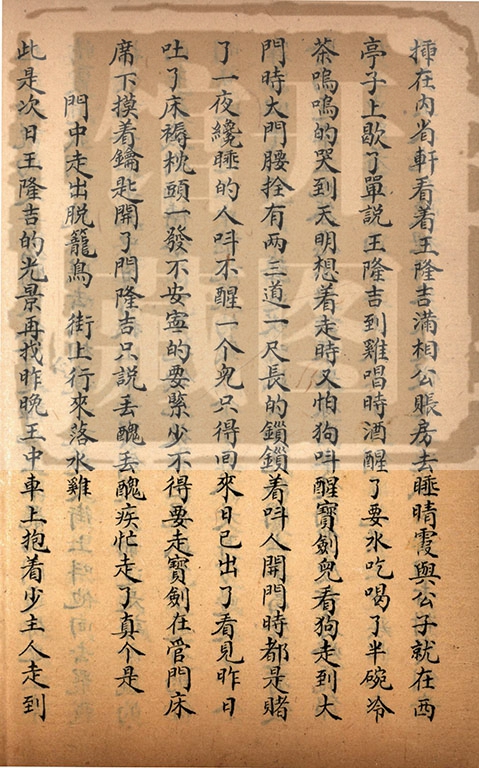 揷在內省軒看着王隆吉滿相公賬房去睡晴霞與公子就在西
亭子上歇了單說王隆吉到雞唱時酒醒了要氷吃喝了半碗冷
茶嗚嗚的哭到天明想着走時又怕狗呌醒寳劍兒看狗走到大
門時大門腰拴有兩三道一尺長的鎻鎻着呌人開門時都是賭
了一夜纔睡的人呌不醒一个兒只得囘來日已出了看見昨日
吐了床褥枕頭一發不安寍的要緊少不得要走寳劍在管門床
席下摸着鑰匙開了門隆吉只說丢醜丢醜疾忙走了真个是
門中走出脱籠鳥 街上行來落水雞
此是次日王隆吉的光景再找昨晚王中車上抱着少主人走到